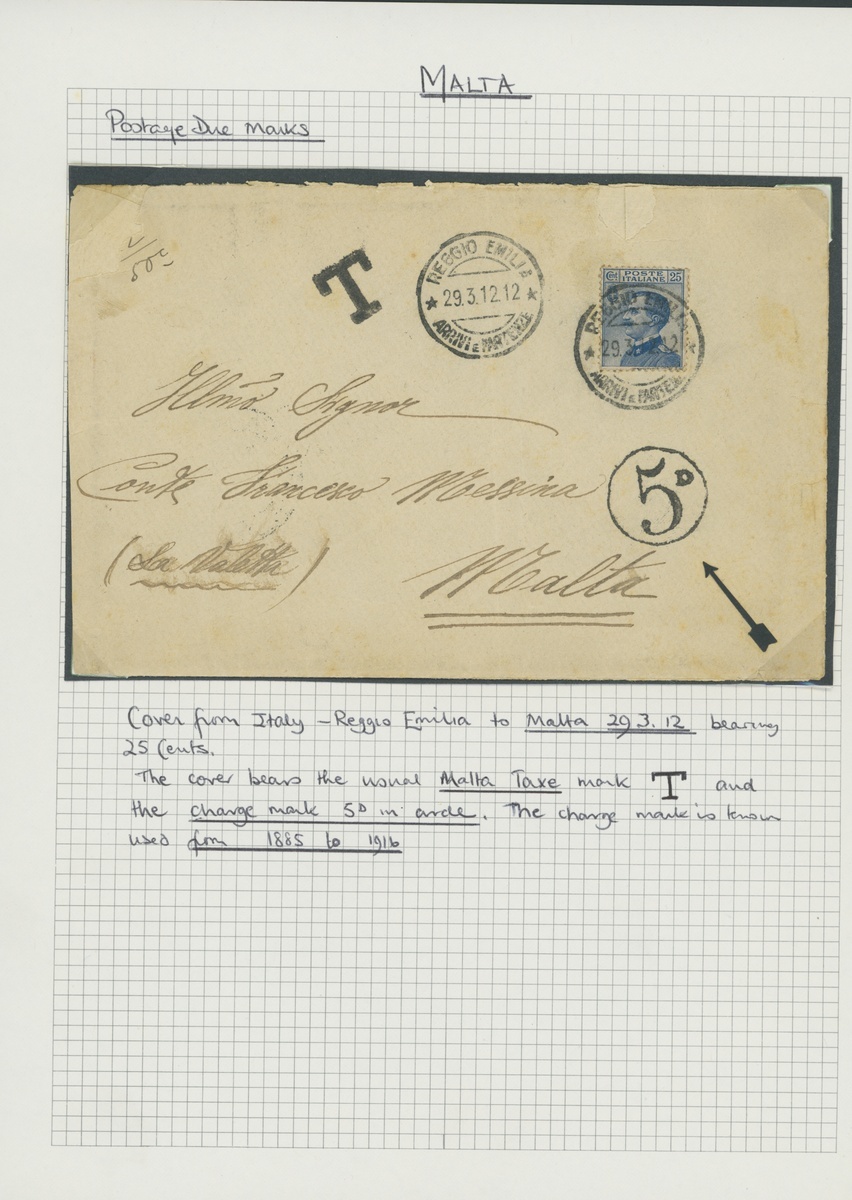 MALTA
Postage Due Marks
50c
T
REGGIO EMILIA
29.3.12.12
ARRIVI E PARTENZE
Cmi POSTE ITALIANE 25
REGGIO EMILIA
29.3
ARRIVI E PARTENZE
Illmo Signor
Conte Francesco Messina
5D
(La Valetta)
Malta
Cover from Italy - Reggio Emilia to Malta 29 3. 12 bearing
25 Cents.
The cover bears the usual Malta Taxe mark T and
the charge mark 5D in circle. The charge mark is known
used from 1885 to 1916